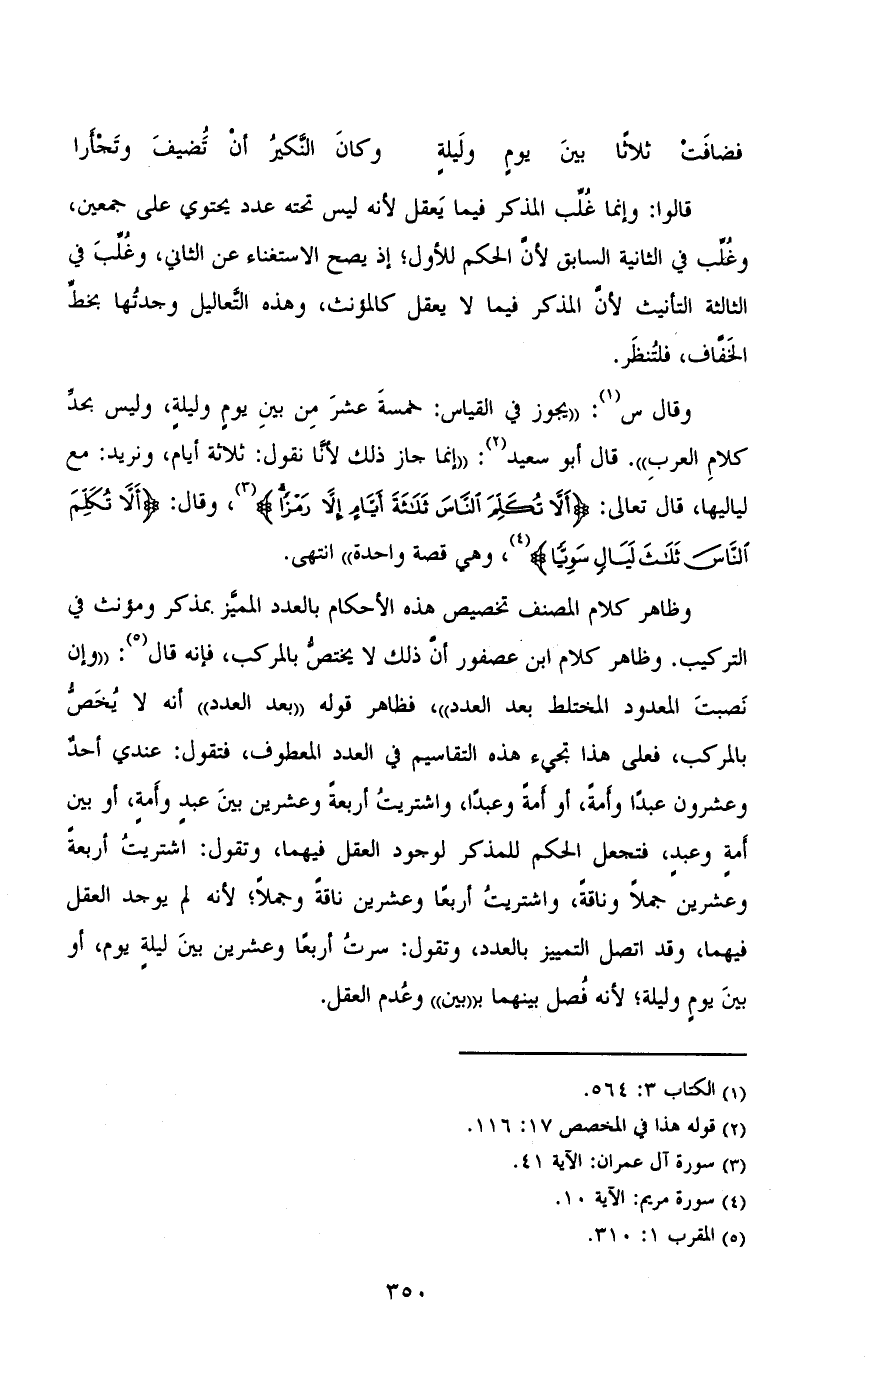 فضافَتْ ثلاثًا بينَ يومٍ ولَيلةٍ وكانَ النَّكيرُ أنْ تُضيفَ وتَجْأَرا
قالوا: وإنما غُلِّب المذكر فيما يَعقل لأنه ليس تحته عدد يحتوي على جمعين،
وغُلِّب في الثانية السابق لأنَّ الحكم للأول؛ إذ يصح الاستغناء عن الثاني، وغُلِّبَ في
الثالثة التأنيث لأنَّ المذكر فيما لا يعقل كالمؤنث، وهذه التَّعاليل وجدتُها بخطِّ
الخَفَّاف، فلتُنظَر.
وقال س(١): «يجوز في القياس: خمسةَ عشرَ مِن بينِ يومٍ وليلةٍ، وليس بحدِّ
كلامِ العربِ». قال أبو سعيد(٢): «إنما جاز ذلك لأنَّا نقول: ثلاثة أيام، ونريد: مع
لياليها، قال تعالى: ﴿أَلَّا تُكَلِّمَ ٱلنَّاسَ ثَلَٰثَةَ أَيَّامٍ إِلَّا رَمْزًا﴾(٣)، وقال: ﴿أَلَّا تُكَلِّمَ
ٱلنَّاسَ ثَلَٰثَ لَيَالٍ سَوِيًّا﴾(٤)، وهي قصة واحدة» انتهى.
وظاهر كلام المصنف تخصيص هذه الأحكام بالعدد المميَّز بمذكر ومؤنث في
التركيب. وظاهر كلام ابن عصفور أنَّ ذلك لا يختصُّ بالمركب، فإنه قال(٥): «وإن
نَصبتَ المعدود المختلط بعد العدد»، فظاهر قوله «بعد العدد» أنه لا يُخَصُّ
بالمركب، فعلى هذا تجيء هذه التقاسيم في العدد المعطوف، فتقول: عندي أحدٌ
وعشرون عبدًا وأَمةً، أو أَمةً وعبدًا، واشتريتُ أربعةً وعشرين بينَ عبدٍ وأَمةٍ، أو بين
أَمةٍ وعبدٍ، فتجعل الحكم للمذكر لوجود العقل فيهما، وتقول: اشتريتُ أربعةً
وعشرين جملاً وناقةً، واشتريتُ أربعًا وعشرين ناقةً وجملاً؛ لأنه لم يوجد العقل
فيهما، وقد اتصل التمييز بالعدد، وتقول: سرتُ أربعًا وعشرين بينَ ليلةٍ يوم، أو
بينَ يومٍ وليلة؛ لأنه فُصل بينهما بـ«بين» وعُدم العقل.
(١) الكتاب ٣: ٥٦٤.
(٢) قوله هذا في المخصص ١٧: ١١٦.
(٣) سورة آل عمران: الآية ٤١.
(٤) سورة مريم: الآية ١٠.
(٥) المقرب ١: ٣١٠.
٣٥٠